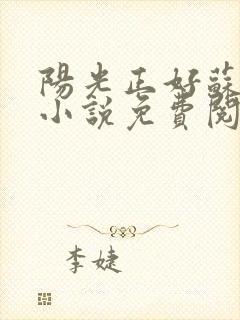 陽光正好蘇
小說免費閱
李婕